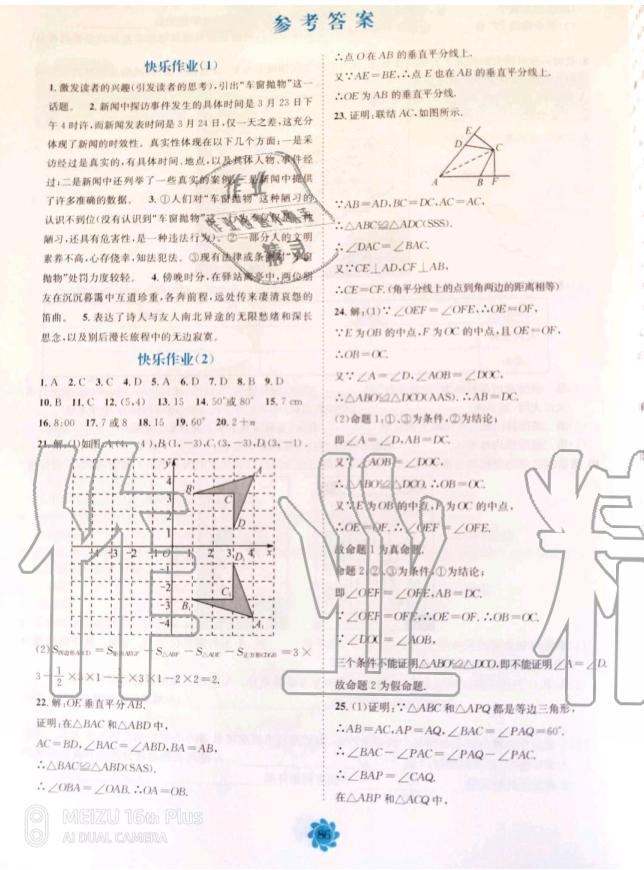 参考答案
快乐作业(1)
1. 激发读者的兴趣(引发读者的思考),引出“车窗抛物”这一
话题。 2. 新闻中探访事件发生的具体时间是3月23日下
午4时许,而新闻发表时间是3月24日,仅一天之差,这充分
体现了新闻的时效性。真实性体现在以下几个方面:一是采
访经过是真实的,有具体时间、地点,以及具体人物、事件经
过;二是新闻中还列举了一些真实的案例;三是新闻中提供
了许多准确的数据。 3. ①人们对“车窗抛物”这种陋习的
认识不到位(没有认识到“车窗抛物”这一行为不仅仅是一种
陋习,还具有危害性,是一种违法行为)。②一部分人的文明
素养不高,心存侥幸,知法犯法。③现有法律或条例对“车窗
抛物”处罚力度较轻。 4. 傍晚时分,在驿站离亭中,两位朋
友在沉沉暮霭中互道珍重,各奔前程,远处传来凄清哀怨的
笛曲。 5. 表达了诗人与友人南北异途的无限愁绪和深长
思念,以及别后漫长旅程中的无边寂寞。
快乐作业(2)
1. A 2. C 3. C 4. D 5. A 6. D 7. D 8. B 9. D
10. B 11. C 12. (5,4) 13. 15 14. 50°或80° 15. 7 cm
16. 8:00 17. 7或8 18. 15 19. 60° 20. 2+π
21. 解:(1)如图,A₁(4,-4),B₁(1,-3),C₁(3,-3),D₁(3,-1).
y
4
3
2
1
A
B
C
D
-4 -3 -2 -1 O 1 2 3 4 x
D₁
-2
-3
-4
B₁
C₁
A₁
(2)S四边形ABCD=S矩形ABEGF-S△ABF-S△ADE-S正方形CDGE=3×
3-1/2×3×1-1/2×3×1-2×2=2.
22. 解:OE垂直平分AB.
证明:在△BAC和△ABD中,
AC=BD,∠BAC=∠ABD,BA=AB,
∴△BAC≌△ABD(SAS).
∴∠OBA=∠OAB.∴OA=OB.
∴点O在AB的垂直平分线上.
又∵AE=BE,∴点E也在AB的垂直平分线上.
∴OE为AB的垂直平分线.
23. 证明:联结AC,如图所示.
E
D
C
A
B F
∵AB=AD,BC=DC,AC=AC,
∴△ABC≌△ADC(SSS).
∴∠DAC=∠BAC.
又∵CE⊥AD,CF⊥AB,
∴CE=CF.(角平分线上的点到角两边的距离相等)
24. 解:(1)∵∠OEF=∠OFE,∴OE=OF,
∵E为OB的中点,F为OC的中点,且OE=OF,
∴OB=OC.
又∵∠A=∠D,∠AOB=∠DOC,
∴△ABO≌△DCO(AAS).∴AB=DC.
(2)命题1:①、③为条件,②为结论;
即∠A=∠D,AB=DC.
又∵∠AOB=∠DOC,
∴△ABO≌△DCO.∴OB=OC.
又∵E为OB的中点,F为OC的中点,
∴OE=OF.∴∠OEF=∠OFE.
故命题1为真命题.
命题2:②、③为条件,①为结论;
即∠OEF=∠OFE,AB=DC.
∵∠OEF=∠OFE,∴OE=OF.∴OB=OC.
∵∠DOC=∠AOB,
三个条件不能证明△ABO≌△DCO,即不能证明∠A=∠D.
故命题2为假命题.
25. (1)证明:∵△ABC和△APQ都是等边三角形,
∴AB=AC,AP=AQ,∠BAC=∠PAQ=60°.
∴∠BAC-∠PAC=∠PAQ-∠PAC,
∴∠BAP=∠CAQ.
在△ABP和△ACQ中,
86
MEIZU 16th Plus
AI DUAL CAMERA
作业精
作业
精灵